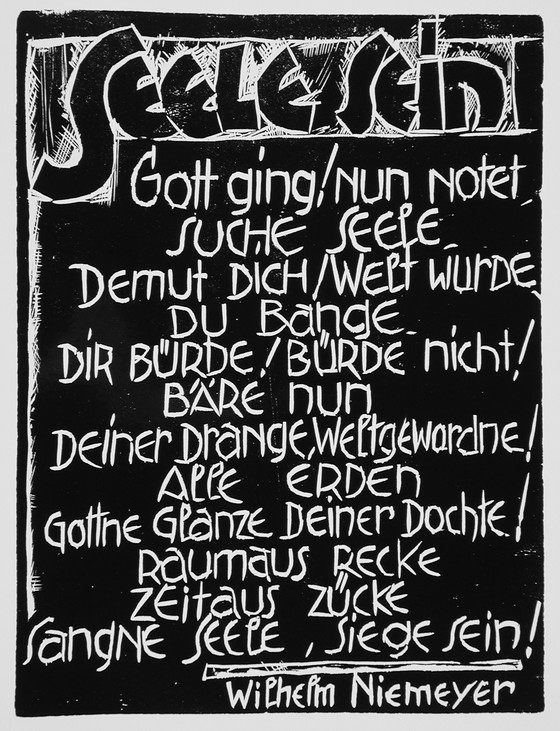 Seele sein
Gott ging! Nun notet
Suche Seele
Demut Dich! Welt wurde
Du Bange
Dir Bürde! Bürde nicht!
Bäre nun
Deiner Drange, Weltgewordne!
Alle Erden
Gottne Glänze Deiner Dochte!
Raumaus Recke
Zeitaus zücke
Sangne Seele, Siege sein!
Wilhelm Niemeyer